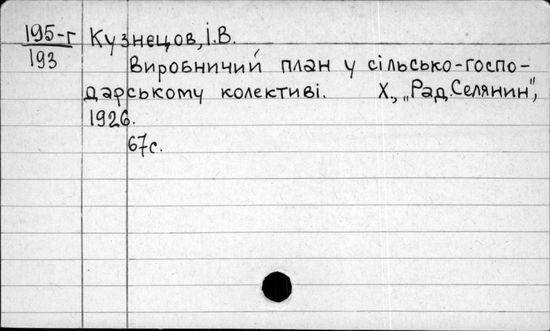 195-г Кузнєцов, І.В.
193
Виробничий план у сільсько-госпо-
дарському колективі. Х., „Рад.Селянин",
1926.
67с.